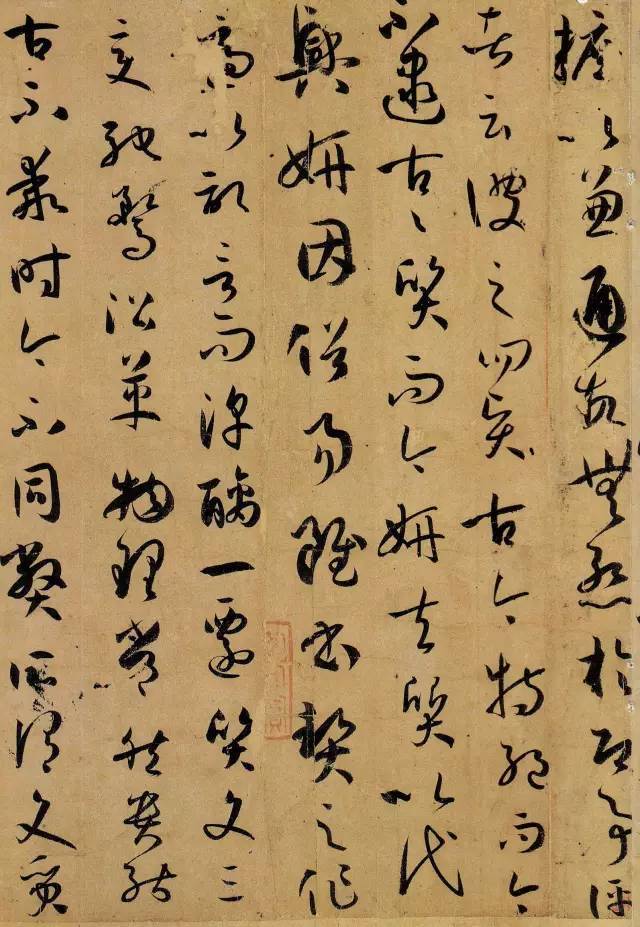 摭以兼通故無慙於即事評
者云彼之四賢古今特絕而今
不逮古〻質而今妍夫質以代
興妍因俗易雖書契之作
適以記言而淳醨一遷質文三
變馳鶩沿革物理常然貴能
古不乖時今不同弊所謂文質